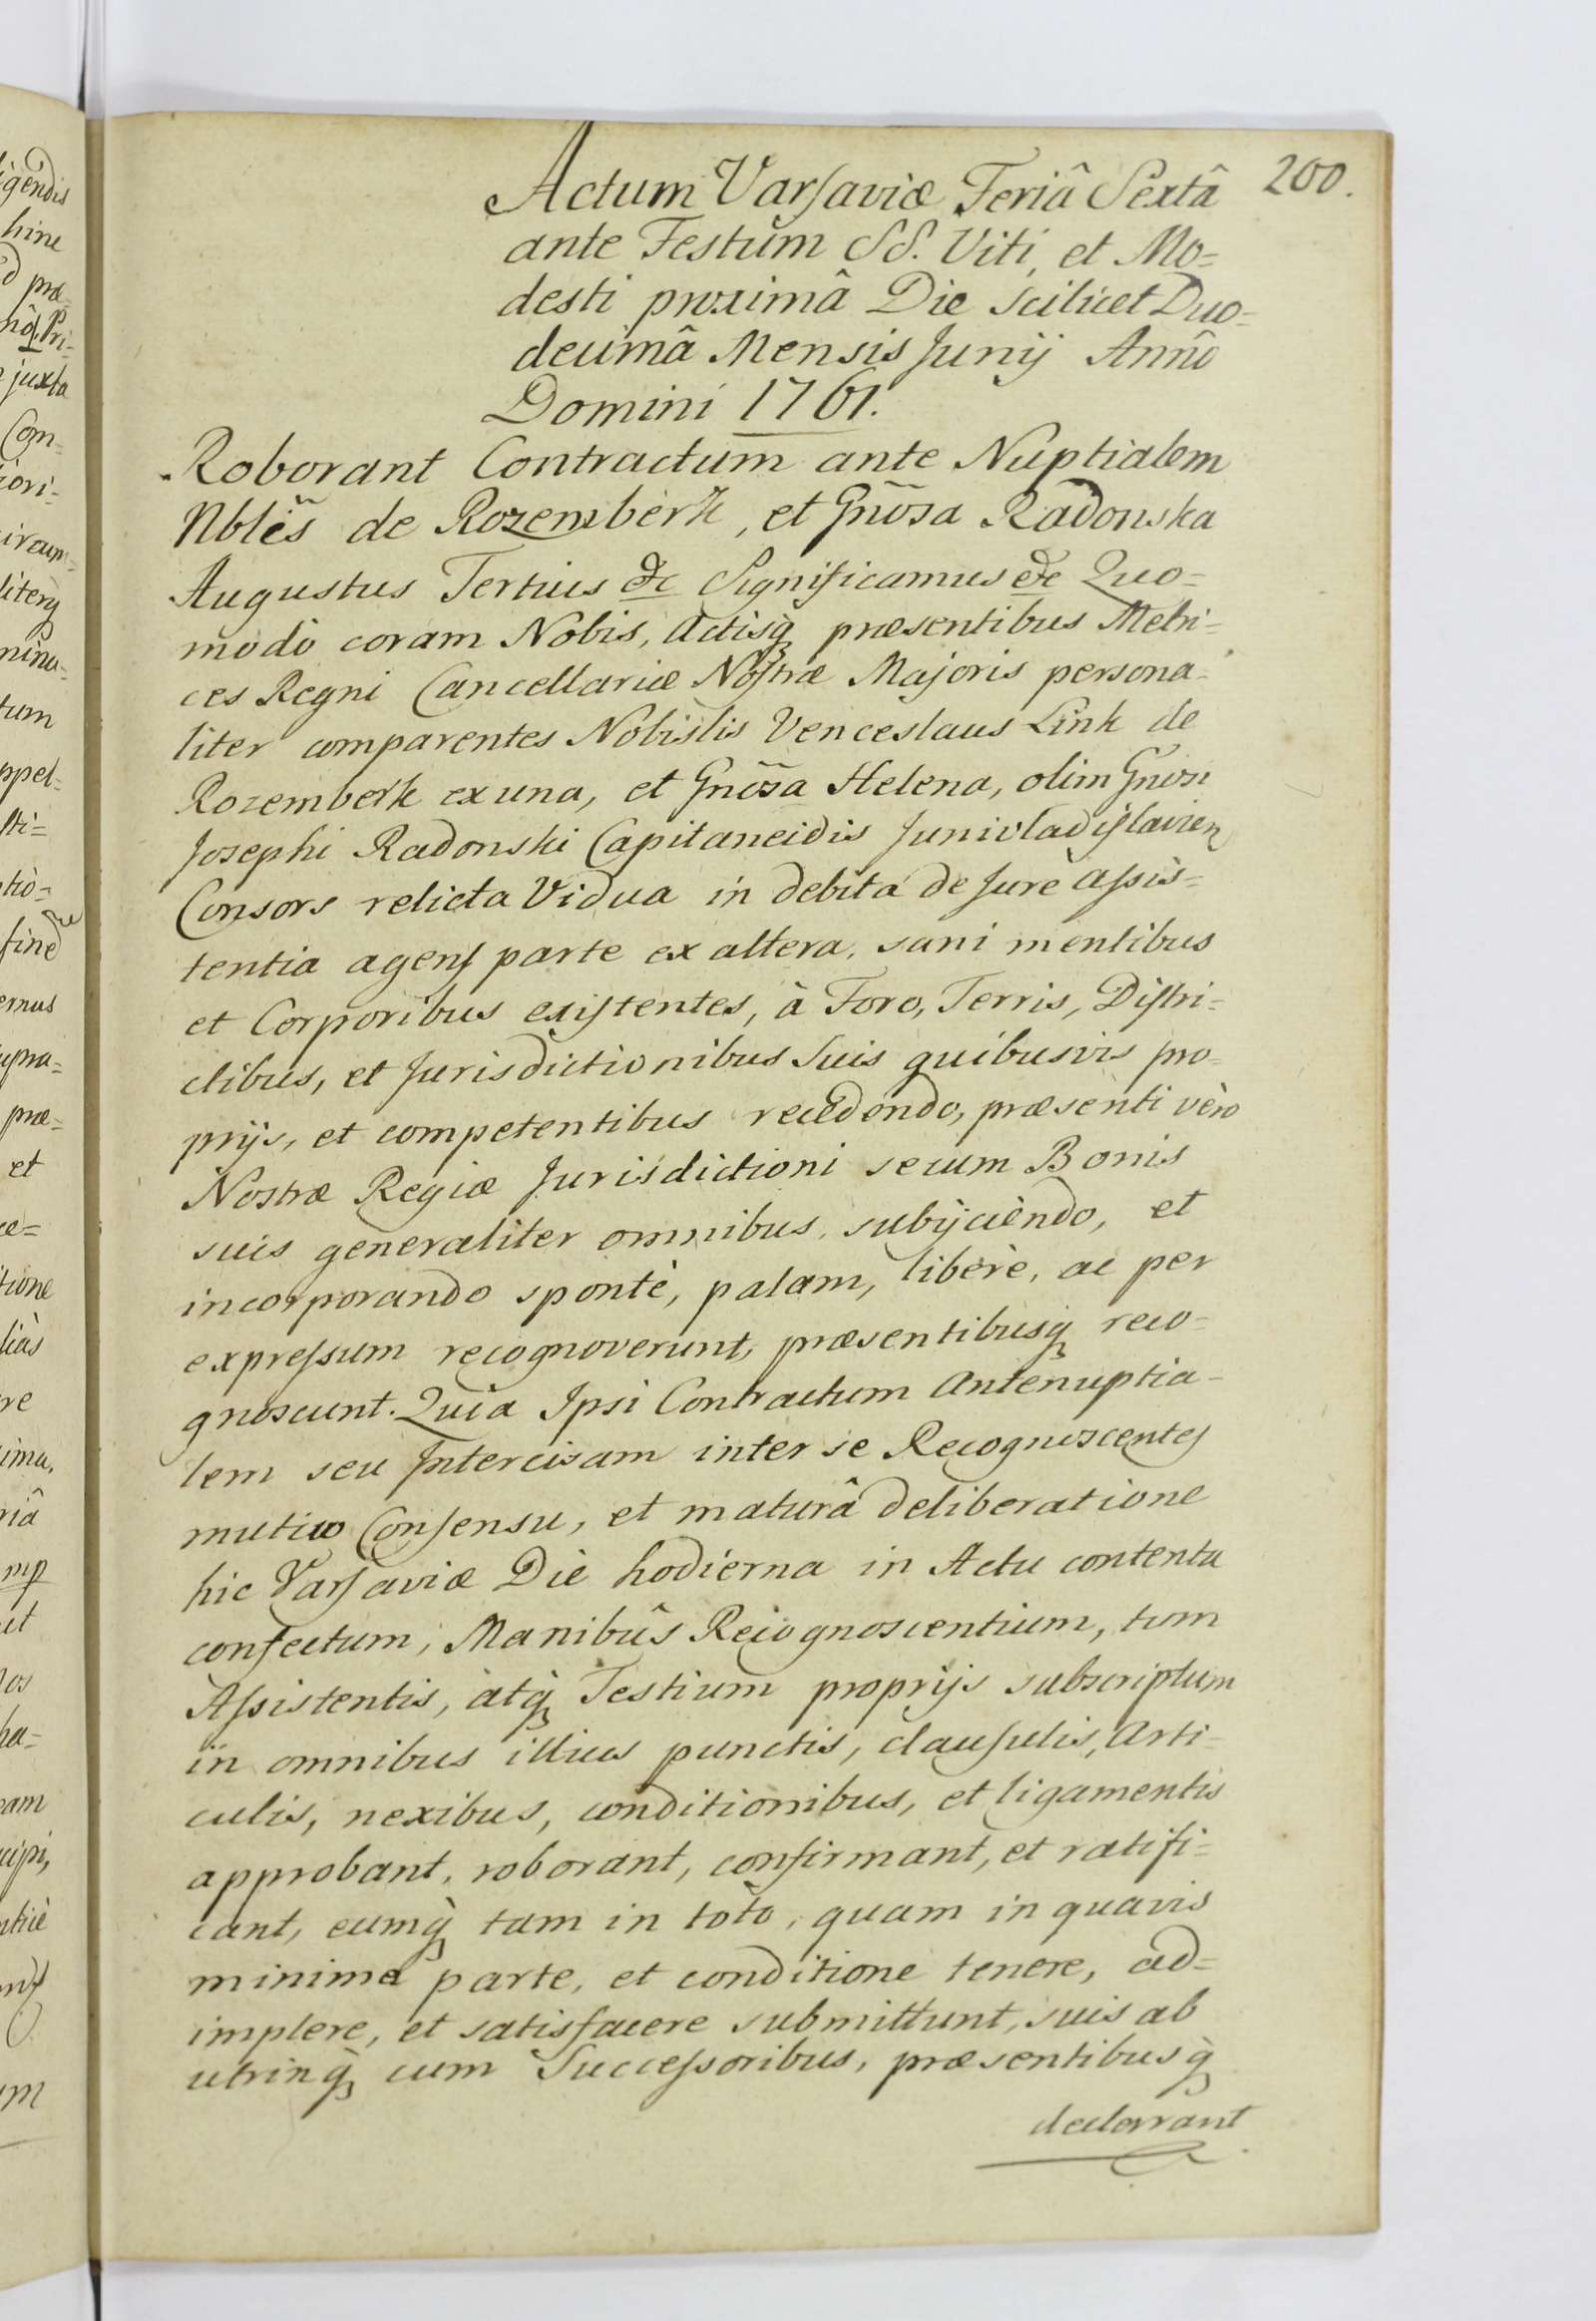 200.
Actum Varsaviæ Feriâ Sextâ
ante Festum SS. Viti, et Mo=
desti proximâ Die scilicet Duo=
decimâ Mensis Junij Annô
Domini 1761.
Roborant Contractum ante Nuptialem
Nbles de Rozemberk, et Gnosa Radonska
Augustus Tertius &c Significamus &c Quo=
modò coram Nobis, Actisq̀ præsentibus Metri=
ces Regni Cancellariæ Nostræ Majoris persona=
liter comparentes Nobislis Venceslaus Link de
Rozemberk ex una, et Gnosa Helena, olim Gnosi
Josephi Radonski Capitaneidis Junivladislavien
Consors relicta Vidua in debita de Jure assis=
tentia agens parte ex altera, sani mentibus
et Corporibus existentes, à Foro, Terris, Distri=
ctibus, et Jurisdictionibus Suis quibusvis pro=
prijs, et competentibus recedendo, præsenti vèro
Nostræ Regiæ Jurisdictioni secum Bonis
suis generaliter omnibus, subijciendo, et
incorporando spontè, palam, liberè, ac per
expressum recognoverunt, præsentibusq̀ reco=
gnoscunt. Quia Ipsi Contractum Antenuptia=
lem seu Intercisam inter se Recognoscentes
mutuo Consensu, et maturâ deliberatione
hic Varsaviæ Die hodierna in Actu contenta
confectum, Manibûs Recognoscentium, tum
Assistentis, atq̀ Testium proprijs subscriptum
in omnibus illius punctis, clausulis, Arti=
culis, nexibus, conditionibus, et ligamentis
approbant, roborant, confirmant, et ratifi=
cant, eumq̀ tam in toto, quam in quavis
minima parte, et conditione tenere, ad=
implere, et satisfacere submittunt, suis ab
utrinq̀ cum Successoribus, præsentibusq̀
declarant